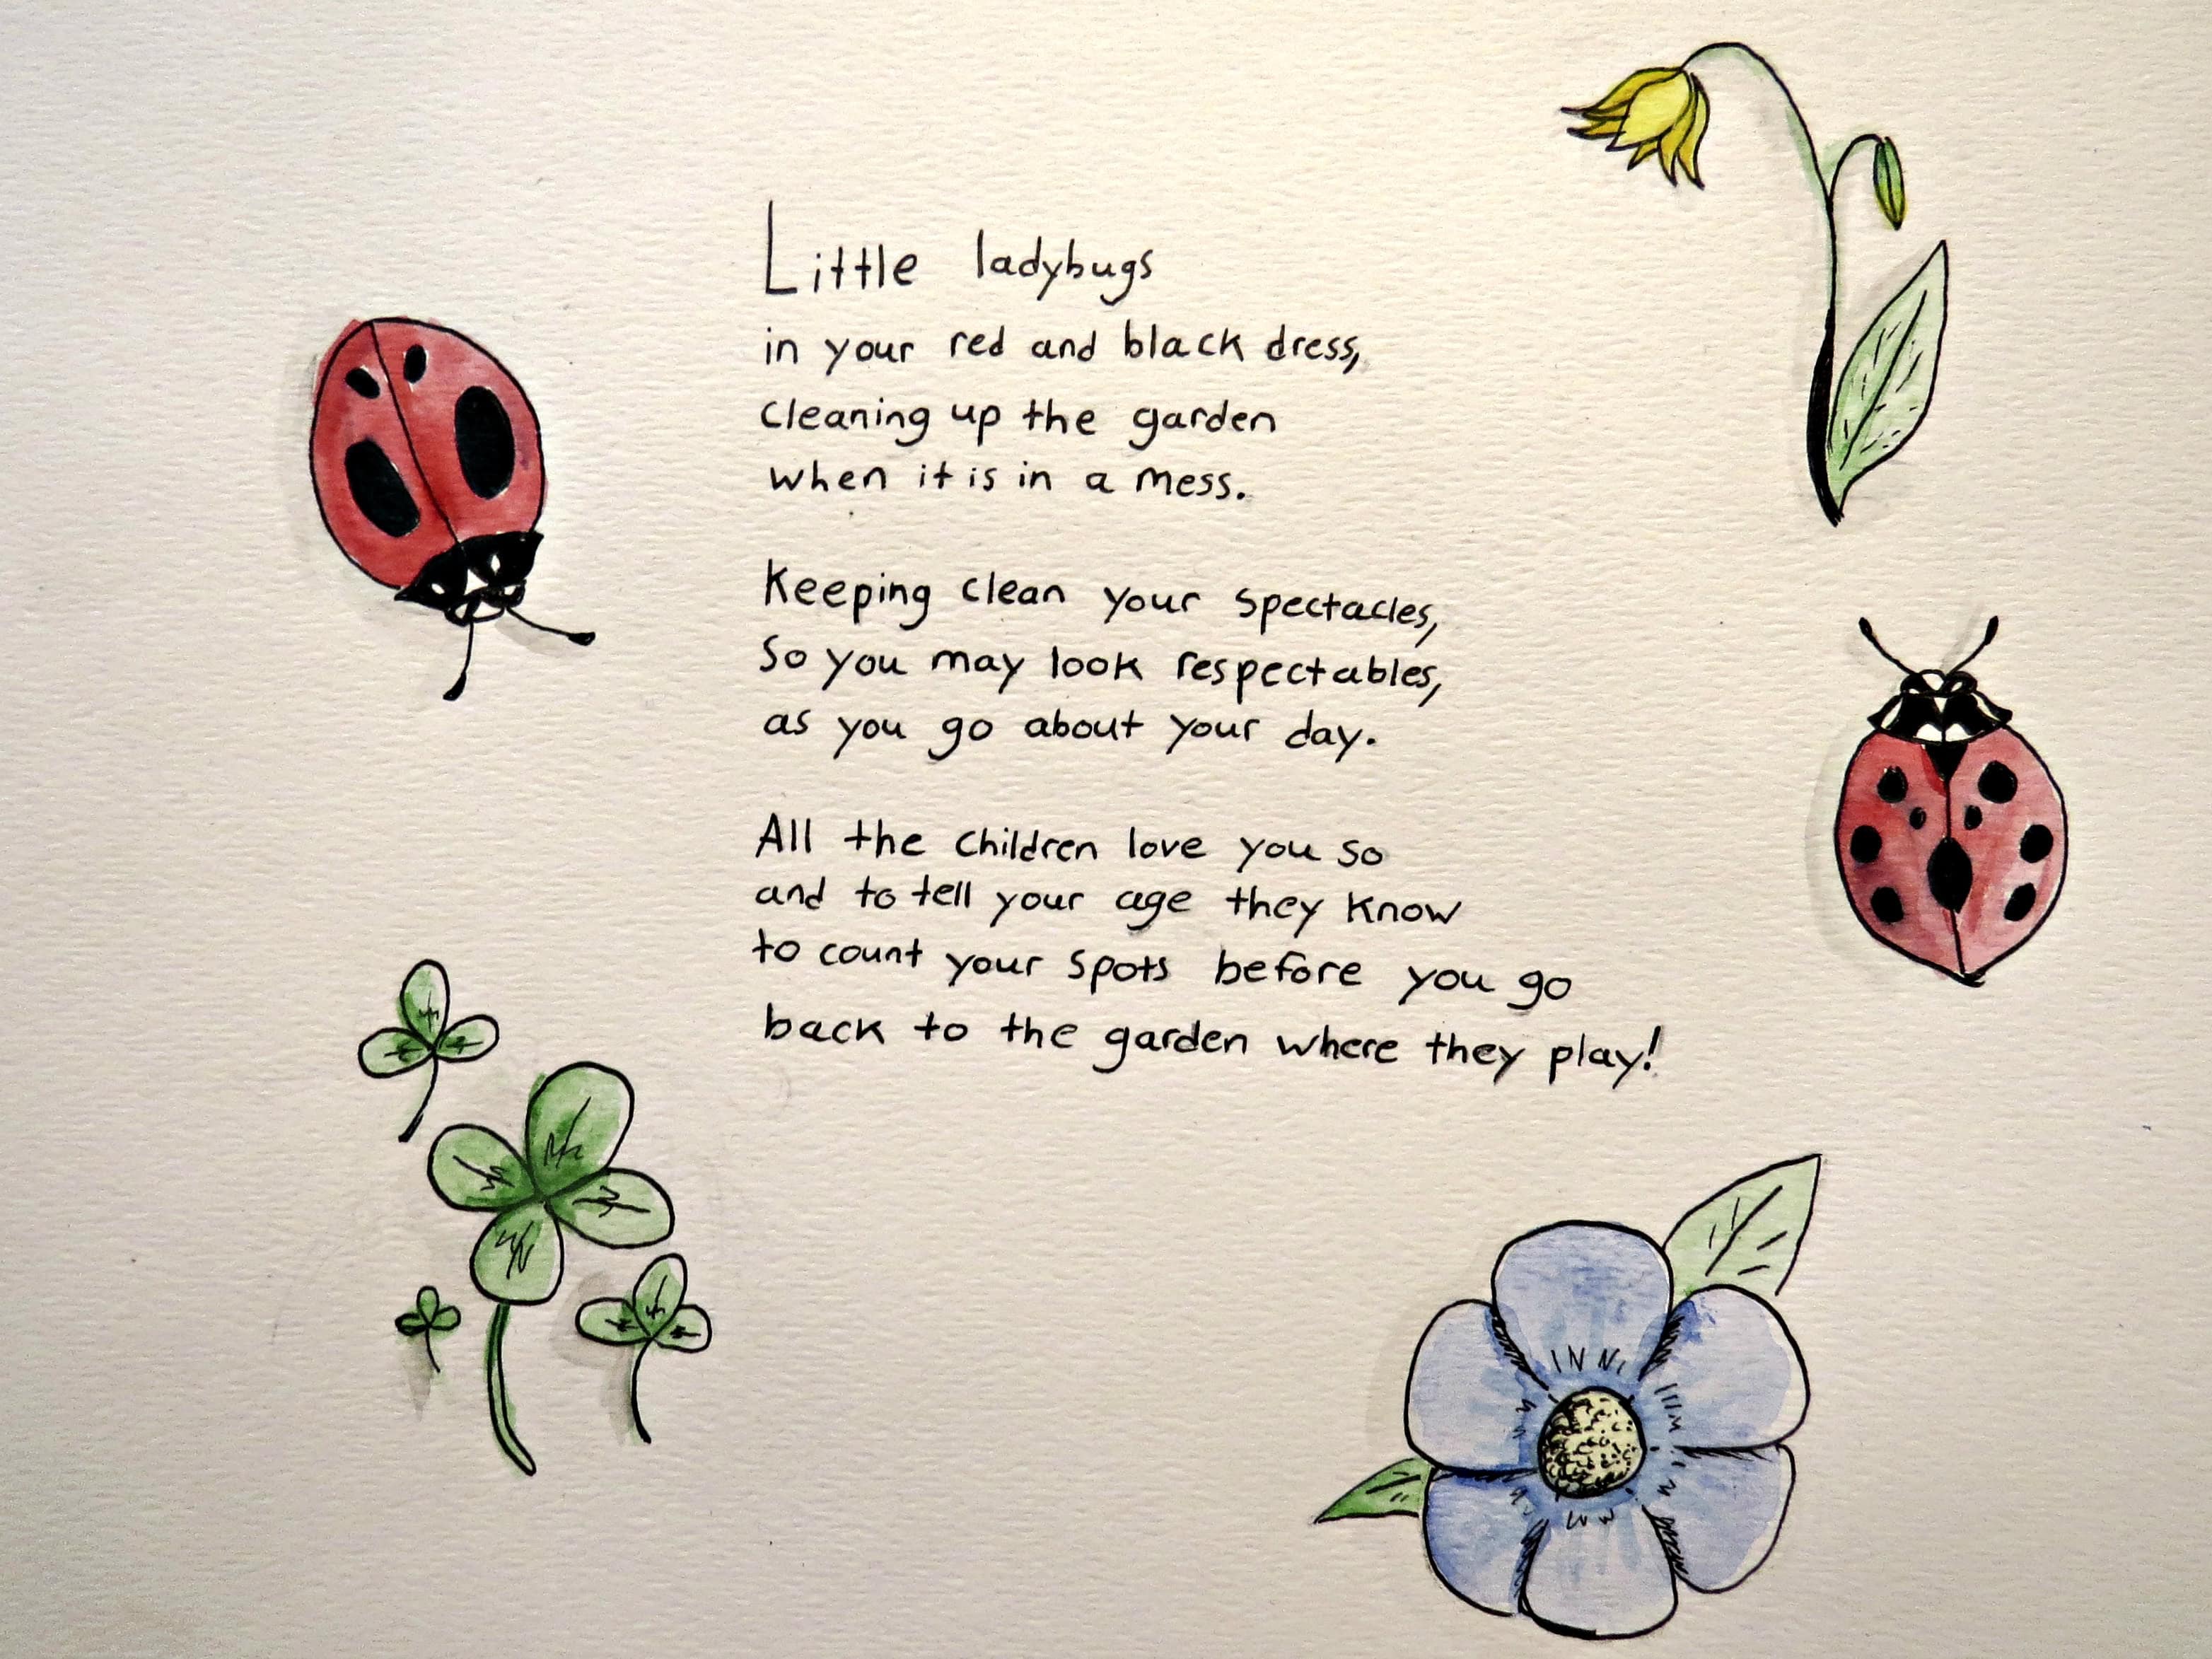 Little ladybugs
in your red and black dress,
cleaning up the garden
when it is in a mess.
Keeping clean your spectacles,
So you may look respectables,
as you go about your day.
All the children love you so
and to tell your age they know
to count your spots before you go
back to the garden where they play!